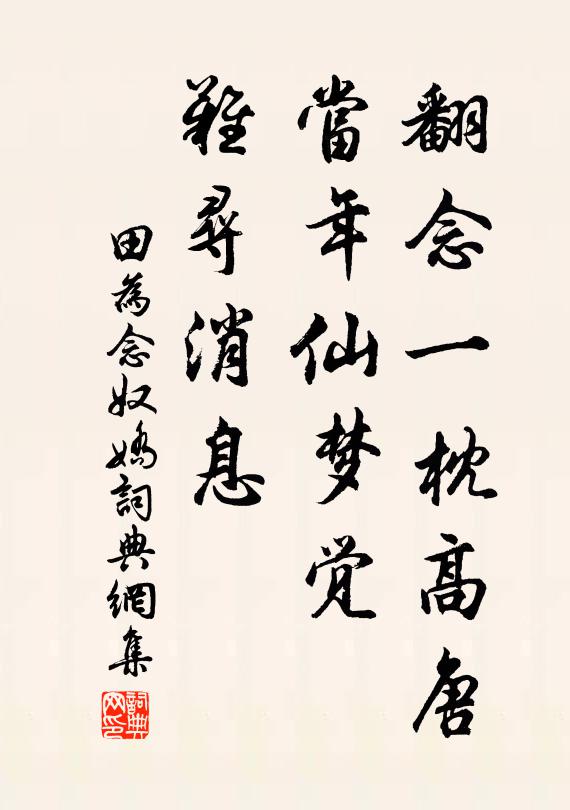 翻念一枕高唐
當年仙梦觉
難尋消息
田為念奴嬌詞典網集
詞典網印